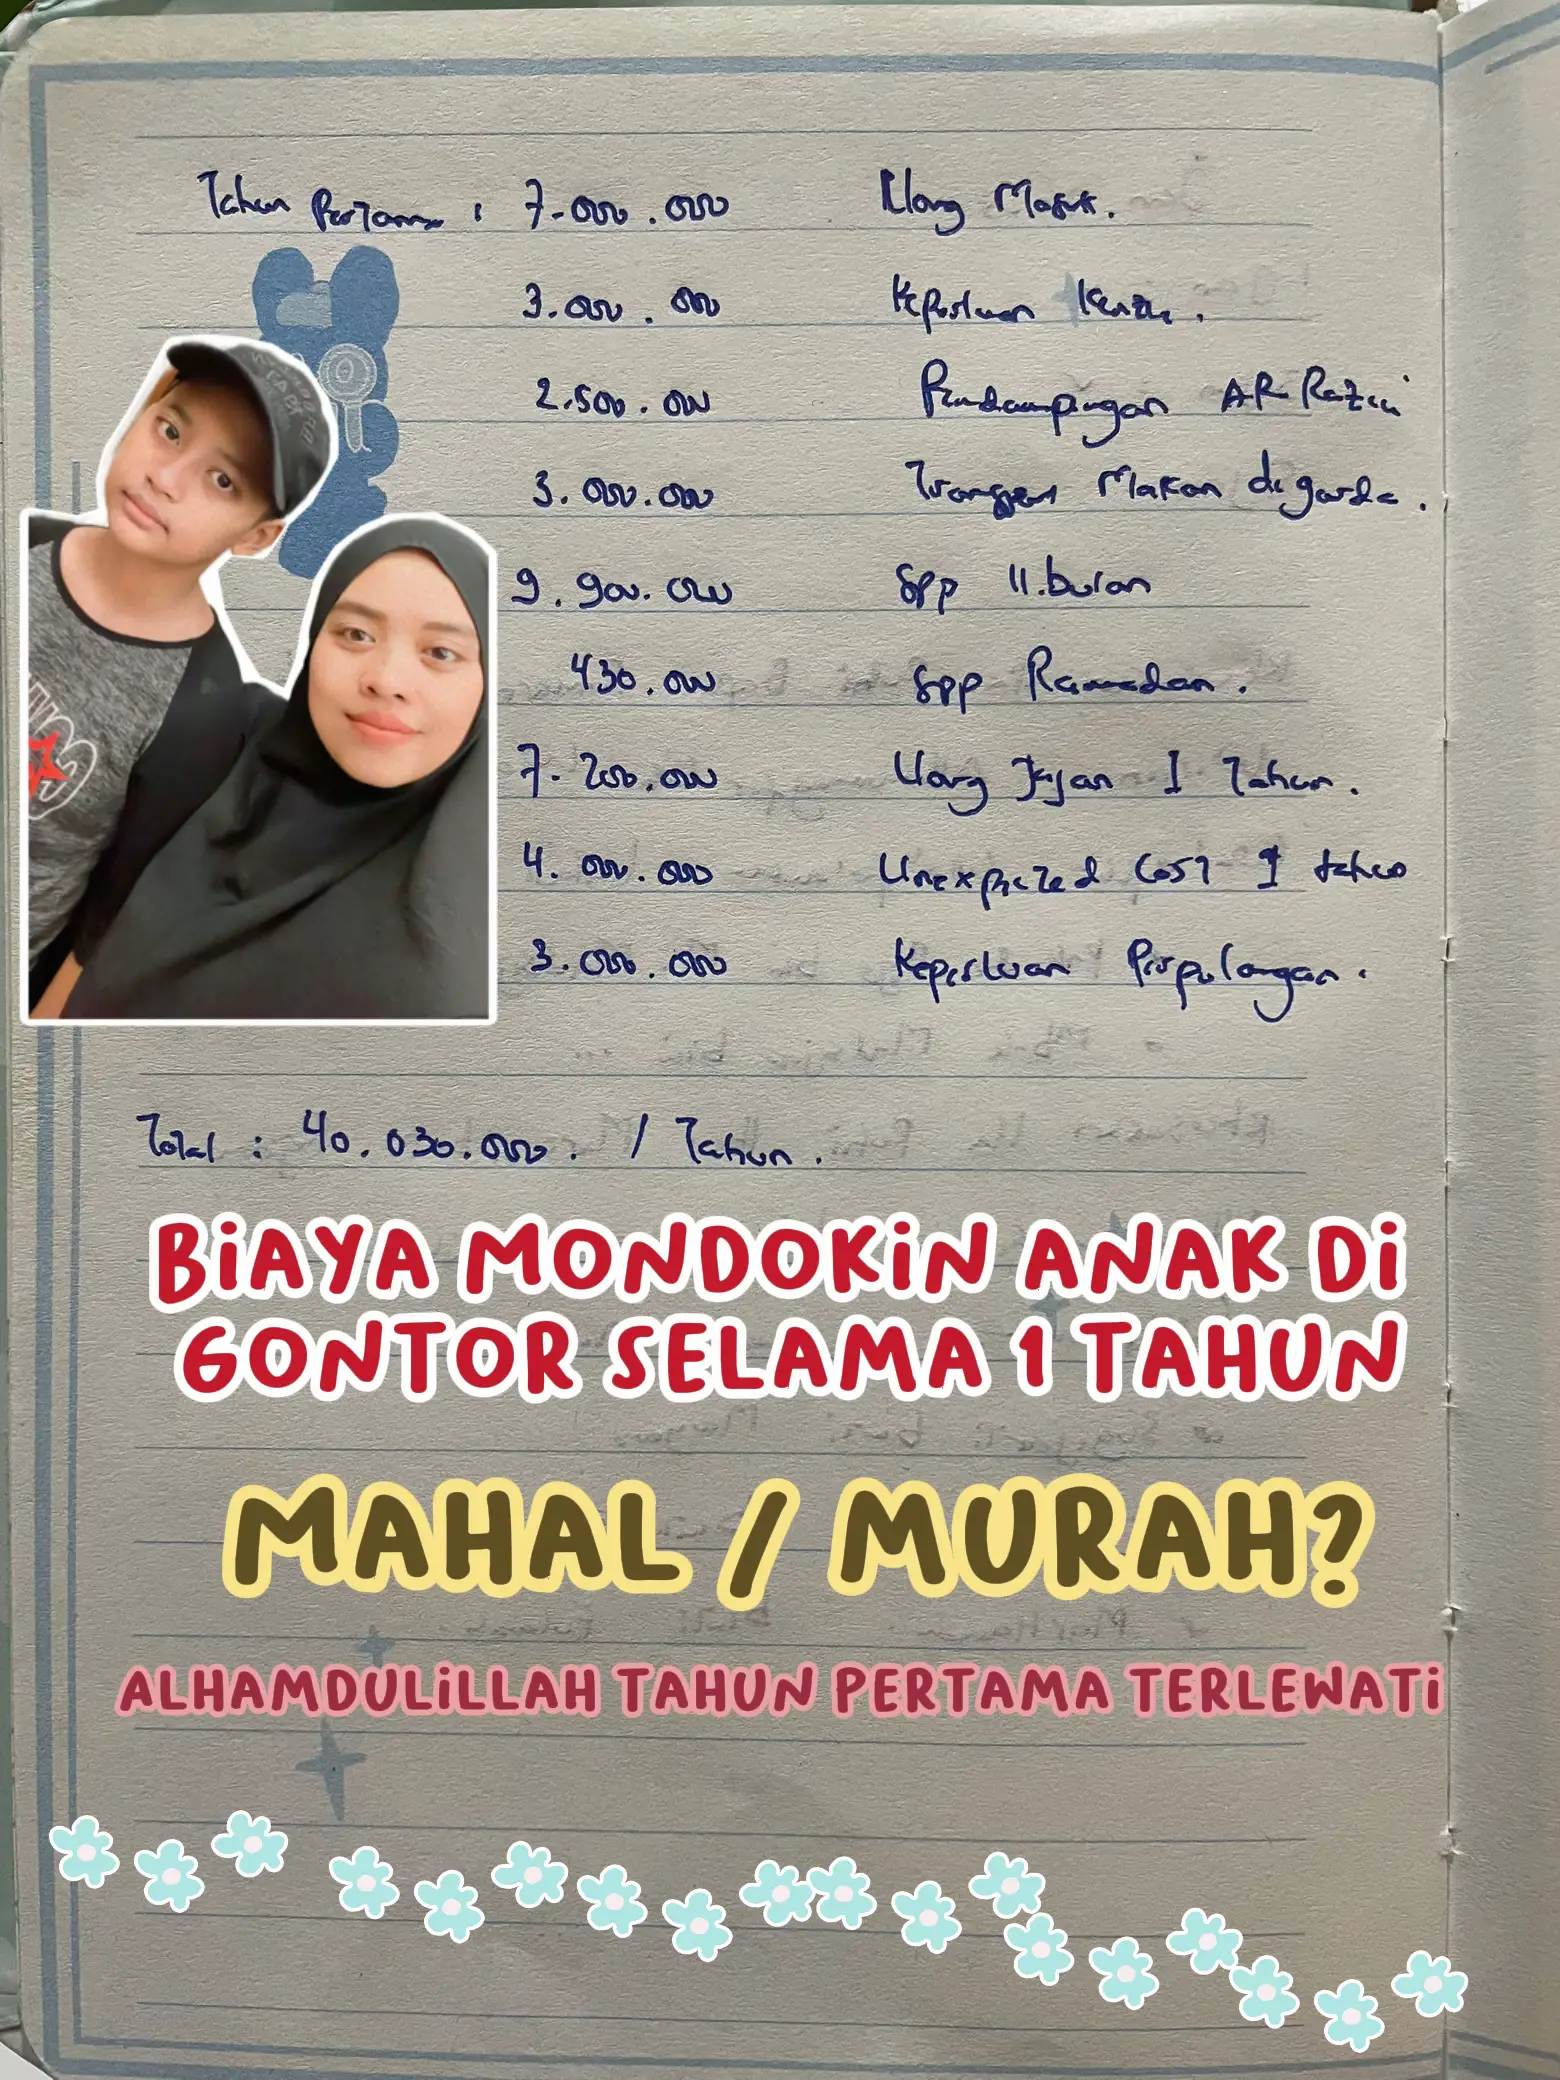 Tahun Pertama : 7.000.000 Uang Masuk.
3.000.000 Keperluan Kenzie.
2.500.000 Pendampingan AR Razii
3.000.000 Transport Makan di
9.900.000 Spp 11.bulan
430.000 Spp Ramadan.
7.200.000 Uang Jajan 1 Tahun.
4.000.000 Unexpected Cost 1 tahun
3.000.000 Keperluan Perpulangan.
Total : 40.030.000. / Tahun.
BiAYA MONDOKiN ANAK Di
GONTOR SELAMA 1 TAHUN
MAHAL / MURAH?
ALHAMDULiLLAH TAHUN PERTAMA TERLEWATi